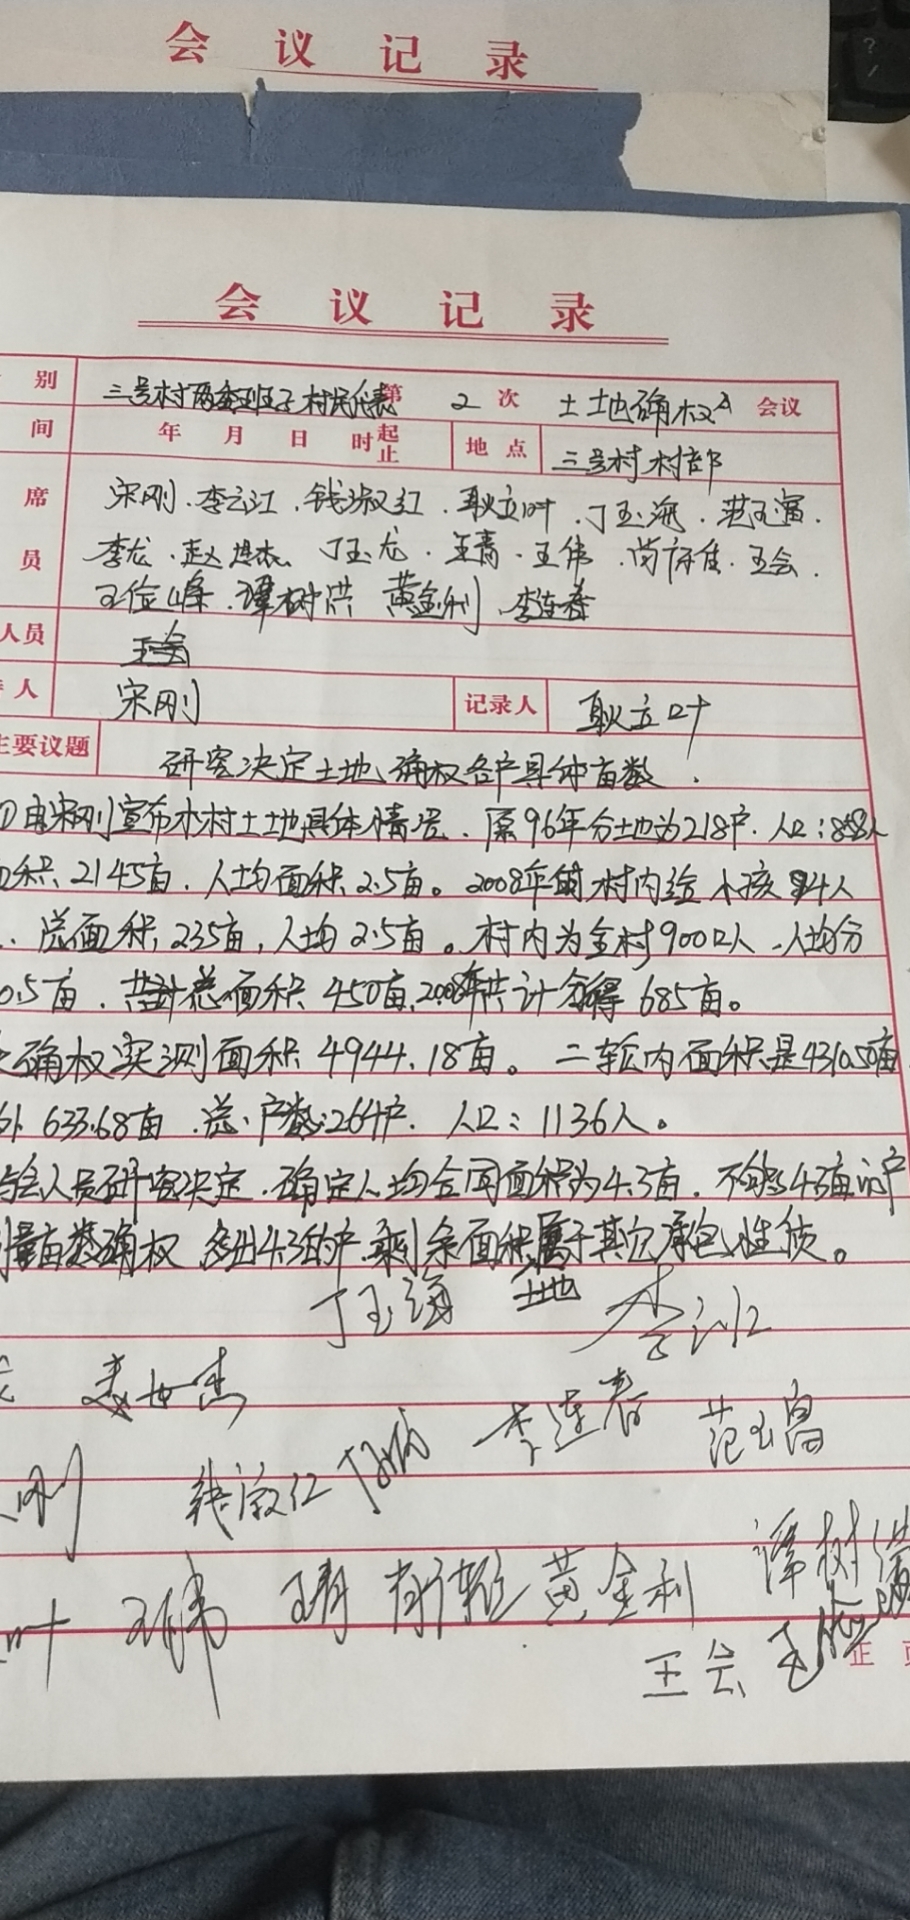 会议记录
会议记录
别 三号村两委班子村民代表 第 2 次 土地确权 会议
间 年 月 日 时 起 止 地点 三号村村部
席 宋刚、李云江、钱淑红、耿立叶、丁玉海、范玉富、
员 李龙、赵世杰、丁玉龙、王青、王伟、尚彦佳、王会、
王俭峰、谭树洪 黄金利、李连春
人员 王会
人 宋刚 记录人 耿立叶
主要议题 研究决定土地确权各户具体亩数.
由宋刚宣布本村土地具体情况.原96年分土地为218户.人口:858人
积2145亩.人均面积2.5亩。2008年 村内给小孩94人
.总面积235亩,人均2.5亩。村内为全村900口人.人均分
0.5亩.共计总面积450亩,2008年共计分得685亩。
确权实测面积4944.18亩。二轮内面积是4310.50亩
外633.68亩.总户数:264户.人口:1136人。
与会人员研究决定.确定人均合同面积为4.3亩.不够4.3亩的户
量亩数确权 多出4.3的户.剩余面积属于其它承包性质。
土地
丁玉海 李云江
李连春 范玉富
刚
叶 王伟 王青 黄金利 谭树洪
王会 王俭峰
正 页